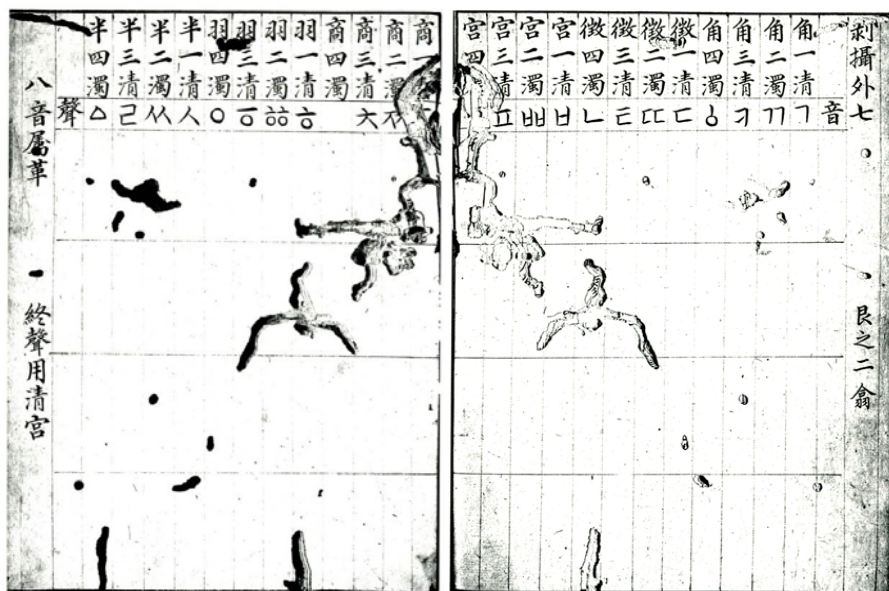 剝攝外七
艮之二翕
音
角一清ㄱ
角二濁ㄲ
角三清ㅋ
角四濁ㆁ
徵一清ㄷ
徵二濁ㄸ
徵三清ㅌ
徵四濁ㄴ
宮一清ㅂ
宮二濁ㅃ
宮三清ㅍ
宮四
商一
商二濁ㅉ
商三清ㅊ
商四濁
羽一清ㅎ
羽二濁ㆅ
羽三清ㆆ
羽四濁ㅇ
半一清ㅅ
半二濁ㅆ
半三清ㄹ
半四濁ㅿ
聲
八音屬革
終聲用清宮